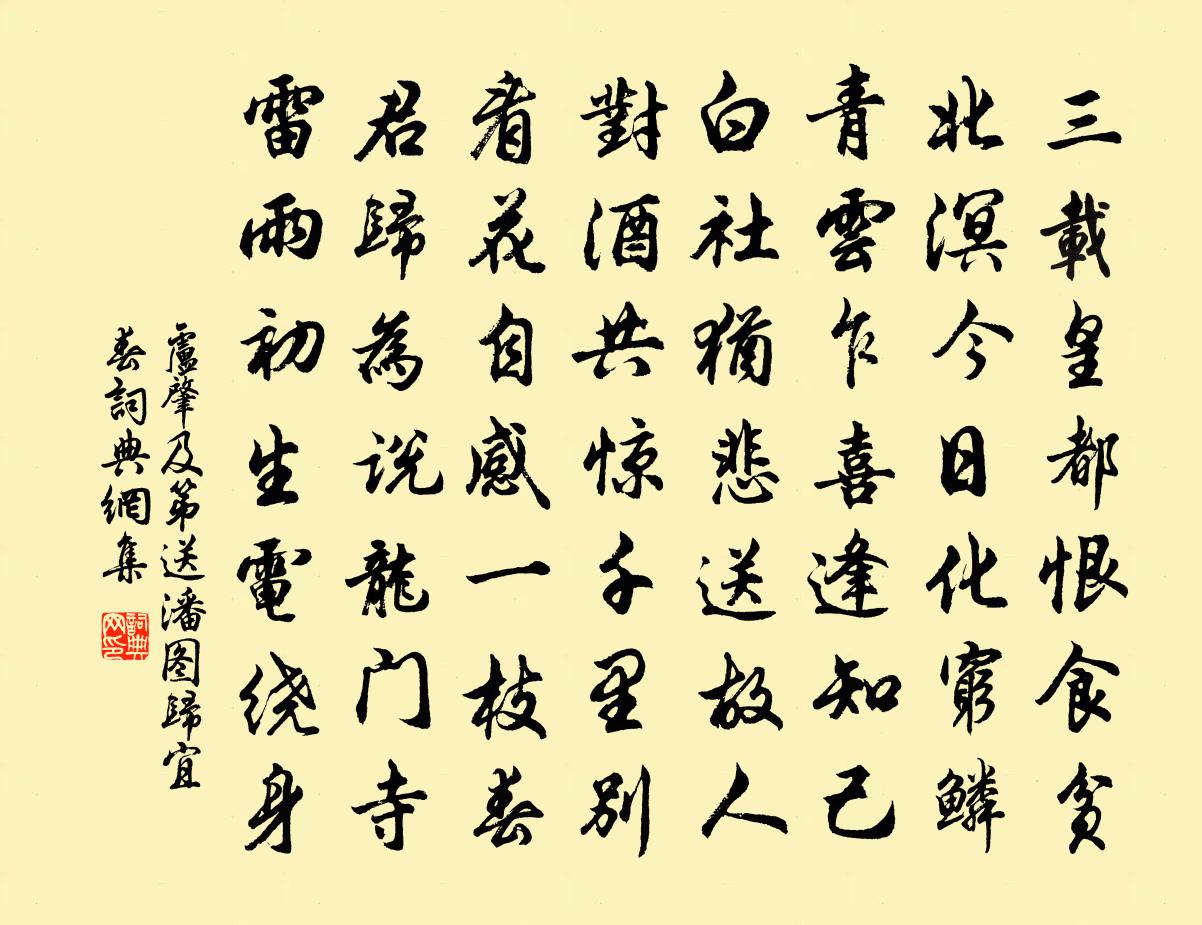 三載皇都恨食貧
北溟今日化窮鱗
青雲乍喜逢知己
白社猶悲送故人
對酒共惊千里別
看花自感一枝春
君歸為说龍门寺
雷雨初生電绕身
盧肇及第送潘图歸宜
春詞典網集
詞典
网印